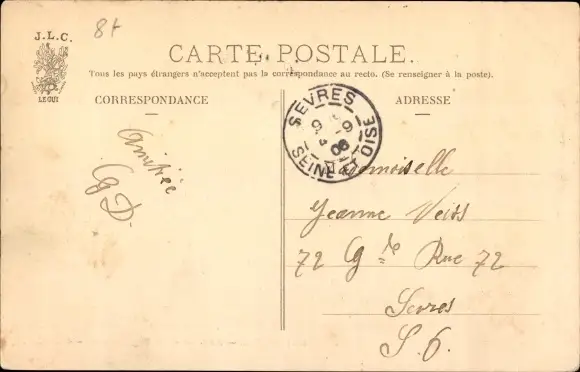 8f
J.L.C.
LE GUI
CARTE POSTALE.
Tous les pays étrangers n'acceptent pas la correspondance au recto. (Se renseigner à la poste).
CORRESPONDANCE
ADRESSE
SEVRES
SEINE ET OISE
Amitiée
CGD.
Mademoiselle
Jeanne Veiss
72 Gde Rue 72
Sevres
S. O.